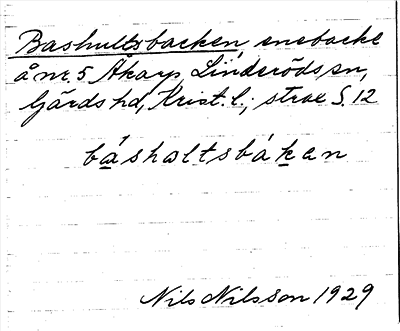 Bashultsbacken, enebacke
å nr. 5 Åkarp, Linderöds sn,
Gärds hd, Krist. l.; strax S. 12
båshaltsbákan
Nils Nilsson 1929